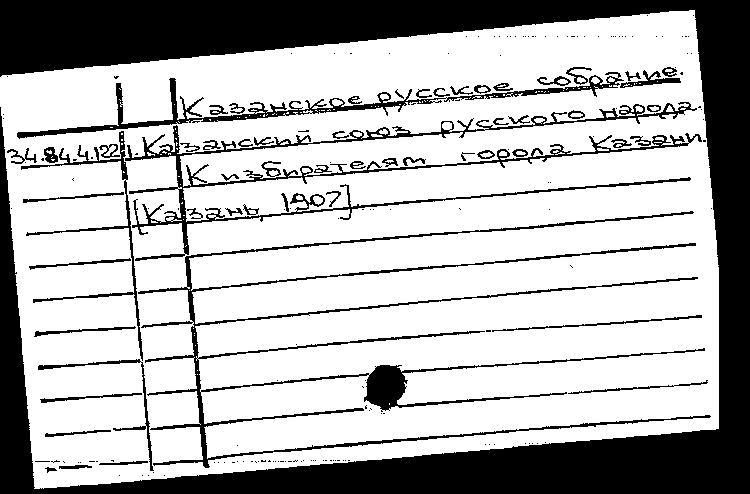 Казанское русское собрание.
34.84.4.122 1. Казанский союз русского народа.
К избирателям города Казани.
[Казань, 1907].